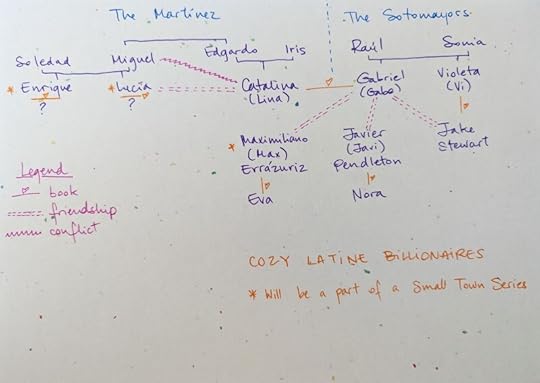 The Martínez
The Sotomayors
Soledad Miguel Edgardo Iris Raúl Sonia
* Enrique * Lucía Catalina Gabriel Violeta
? ? (Lina) (Gabo) (Vi)
* Maximiliano Javier Jake
(Max) (Javi) Stewart
Errázuriz Pendleton
Eva Nora
Legend
book
friendship
conflict
COZY LATINE BILLIONAIRES
* Will be a part of a Small Town Series